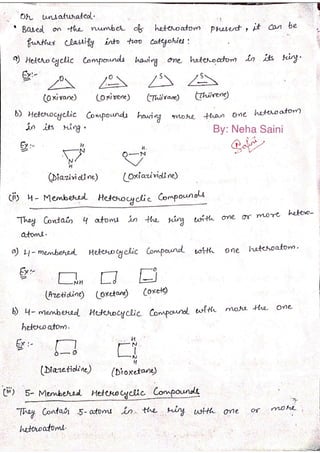 OR unsaturated.
• Based on the number of heteroatom present, it can be
further classify into two categories:
a) Heterocyclic Compounds having one heteroatom in its ring.
Ex:-
O O S S
(Oxirane) (Oxirene) (Thiirane) (Thiirene)
b) Heterocyclic Compounds having more than one heteroatom
in its ring.
By: Neha Saini
Saini
Ex:-
H N N H O N H
(Diaziridine) (Oxaziridine)
(ii) 4- Membered Heterocyclic Compounds
They Contain 4 atoms in the ring with one or more hetero-
atoms.
a) 4-membered Heterocyclic Compound with one heteroatom.
Ex:-
NH O O
(Azetidine) (Oxetane) (Oxete)
b) 4-membered Heterocyclic Compound with more the one
heteroatom.
Ex:-
O-O H N N H
(Diazetidine) (Dioxetane)
(iii) 5- Membered Heterocyclic Compounds
They Contain 5-atoms in the ring with one or more
heteroatoms